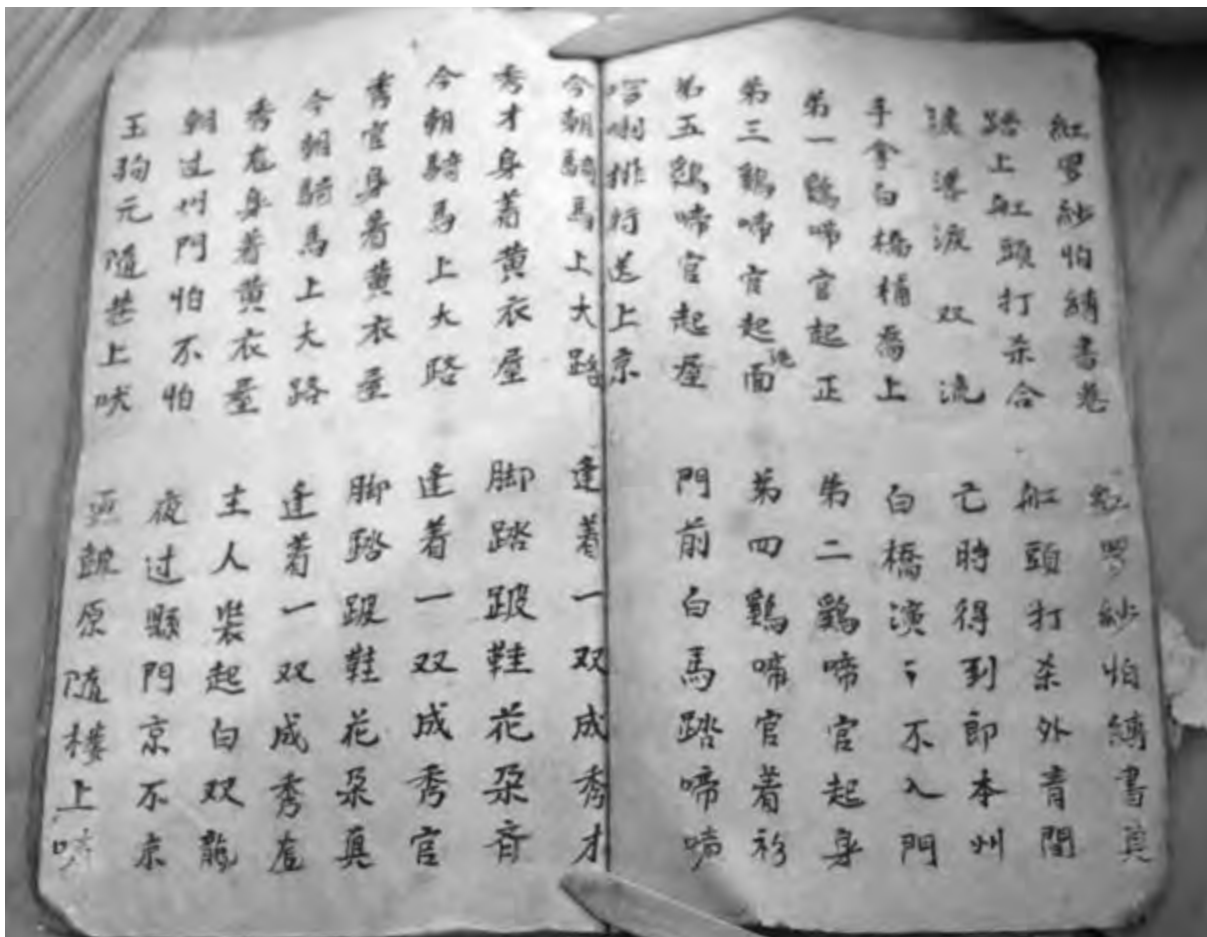 紅罗紗怕縛書卷 紅罗紗怕縛書真
踏上船頭打杀合 船頭打杀外青閒
淚淚双流 亡時得到郎本州
手拿白橋橋喬上 白橋演〻不入門
第一鷄啼官起正 第二鷄啼官起身
第三鷄啼官起洗面 第四鷄啼官着衫
第五鷄啼官起座 門前白馬踏啼啼
排行送上京
今朝騎馬上大路 逢着一双成秀才
秀才身着黄衣屋 脚踏跛鞋花朵斉
今朝騎馬上大路 逢着一双成秀官
秀官身着黄衣屋 脚踏跛鞋花朵真
今朝騎馬上大路 逢着一双成秀
秀身着黄衣屋 主人裝起白双龍
朝过州門怕不怕 夜过縣門京不京
玉狗元隨巷上吠 更鼓原隨樓上